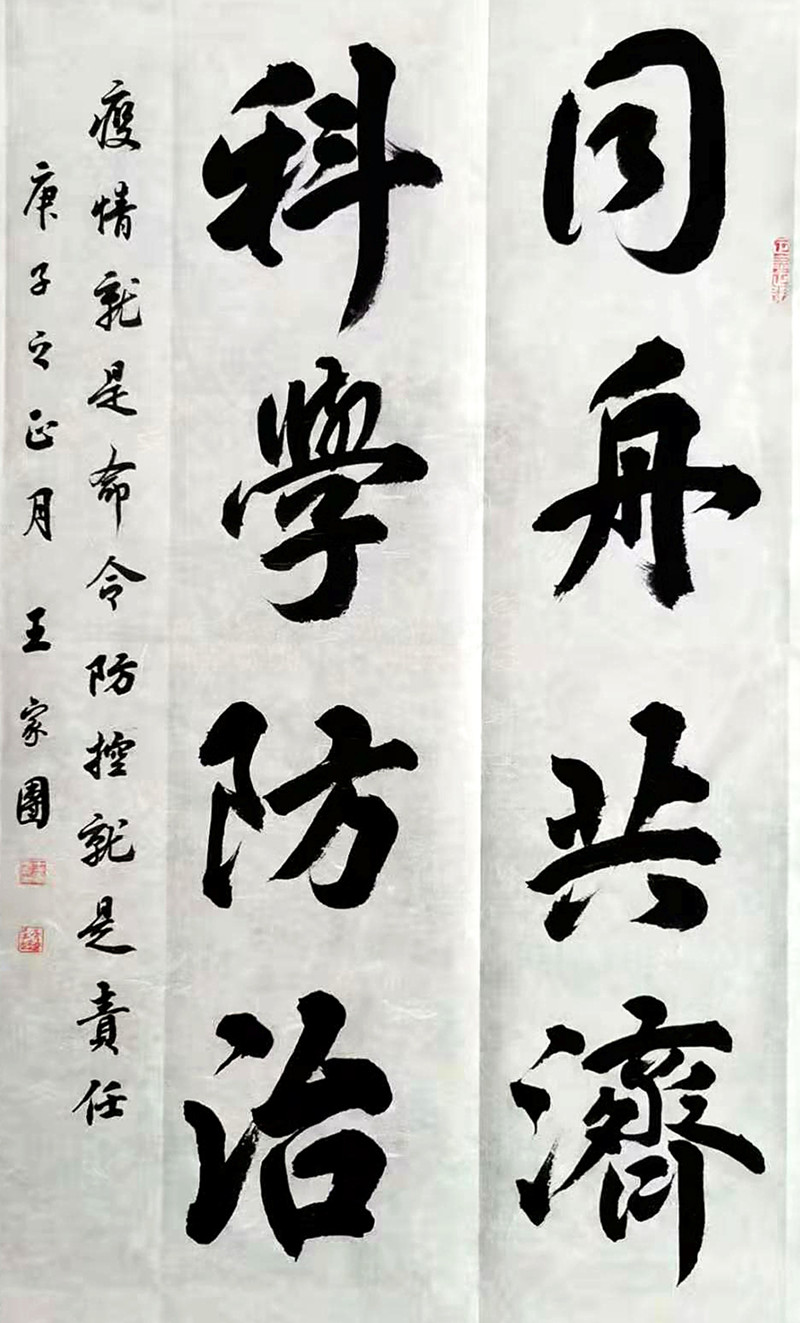 同舟共濟
科學防治
疫情就是命令防控就是責任
庚子之正月 王家團